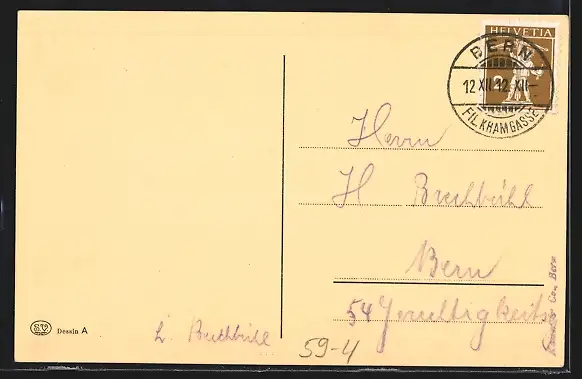 HELVETIA
BERN
12 XII 12 XII
FIL. KRAMGASSE
Herrn
H Brechbühl
Bern
54 Gerechtigkeitsg
Dessin A
L. Brechbühl
59-4